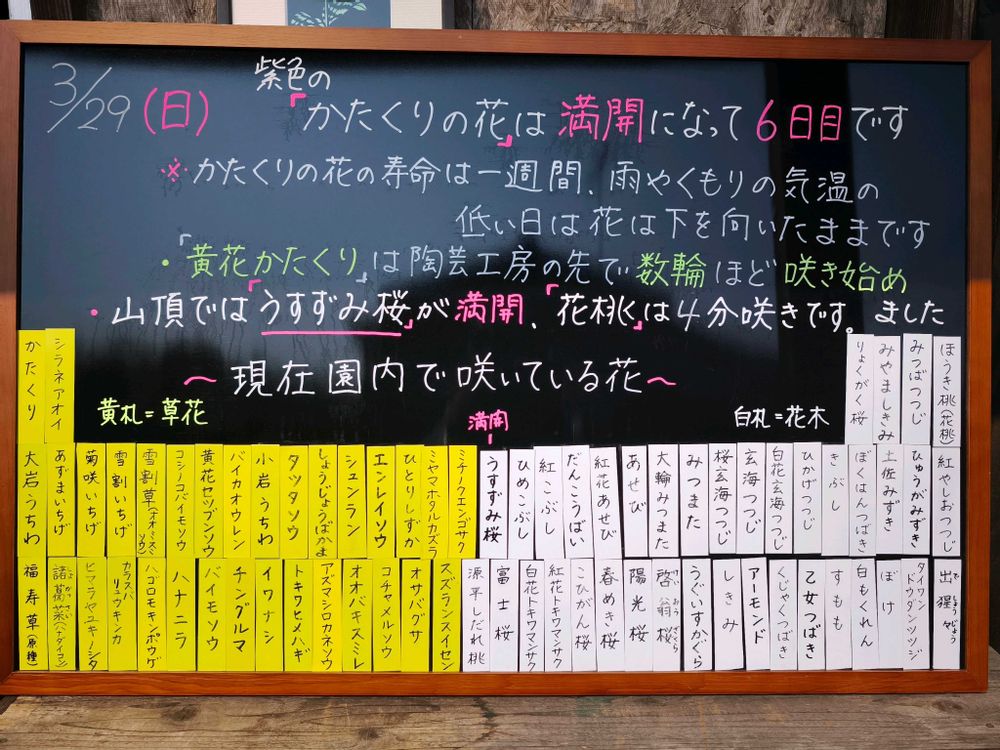 3/29(日)
紫色の
「かたくりの花」は満開になって6日目です
※かたくりの花の寿命は一週間、雨やくもりの気温の
低い日は花は下を向いたままです
・「黄花かたくり」は陶芸工房の先で数輪ほど咲き始め
ました
・山頂では「うすずみ桜」が満開、「花桃」は4分咲きです。
〜現在園内で咲いている花〜
黄札=草花
満開
白札=花木
かたくり
シラネアオイ
りょくがく桜
みやましきみ
みつばつつじ
ほうき桃(花桃)
大岩うちわ
あずまいちげ
菊咲いちげ
雪割いちげ
雪割草(ナオミスミソウ)
コシノコバイモソウ
黄花セツブンソウ
バイカオウレン
小岩うちわ
タツタソウ
しょうじょうばかま
シュンラン
エンレイソウ
ひとりしずか
ミヤマホタルカズラ
ミチノクエンゴサク
うすずみ桜
ひめこぶし
紅こぶし
だんこうばい
紅花あせび
あせび
大輪みつまた
みつまた
桜玄海つつじ
玄海つつじ
白花玄海つつじ
ひかげつつじ
きぶし
ぼくはんつばき
土佐みずき
ひゅうがみずき
紅やしおつつじ
福寿草(原種)
諸葛菜(ハナダイコン)
ヒマラヤユキノシタ
カラスバリュウキンカ
ハゴロモキンポウゲ
ハナニラ
バイモソウ
チングルマ
イワナシ
トキワヒメハギ
アズマシロカネソウ
オオバキスミレ
コチャメルソウ
オサバグサ
スズランスイセン
源平しだれ桃
富士桜
白花トキワマンサク
紅花トキワマンサク
こひがん桜
春めき桜
陽光桜
啓翁桜
うぐいすかぐら
しきみ
アーモンド
くじゃくつばき
乙女つばき
すもも
白もくれん
ぼけ
タイワンドウダンツツジ
出猩々